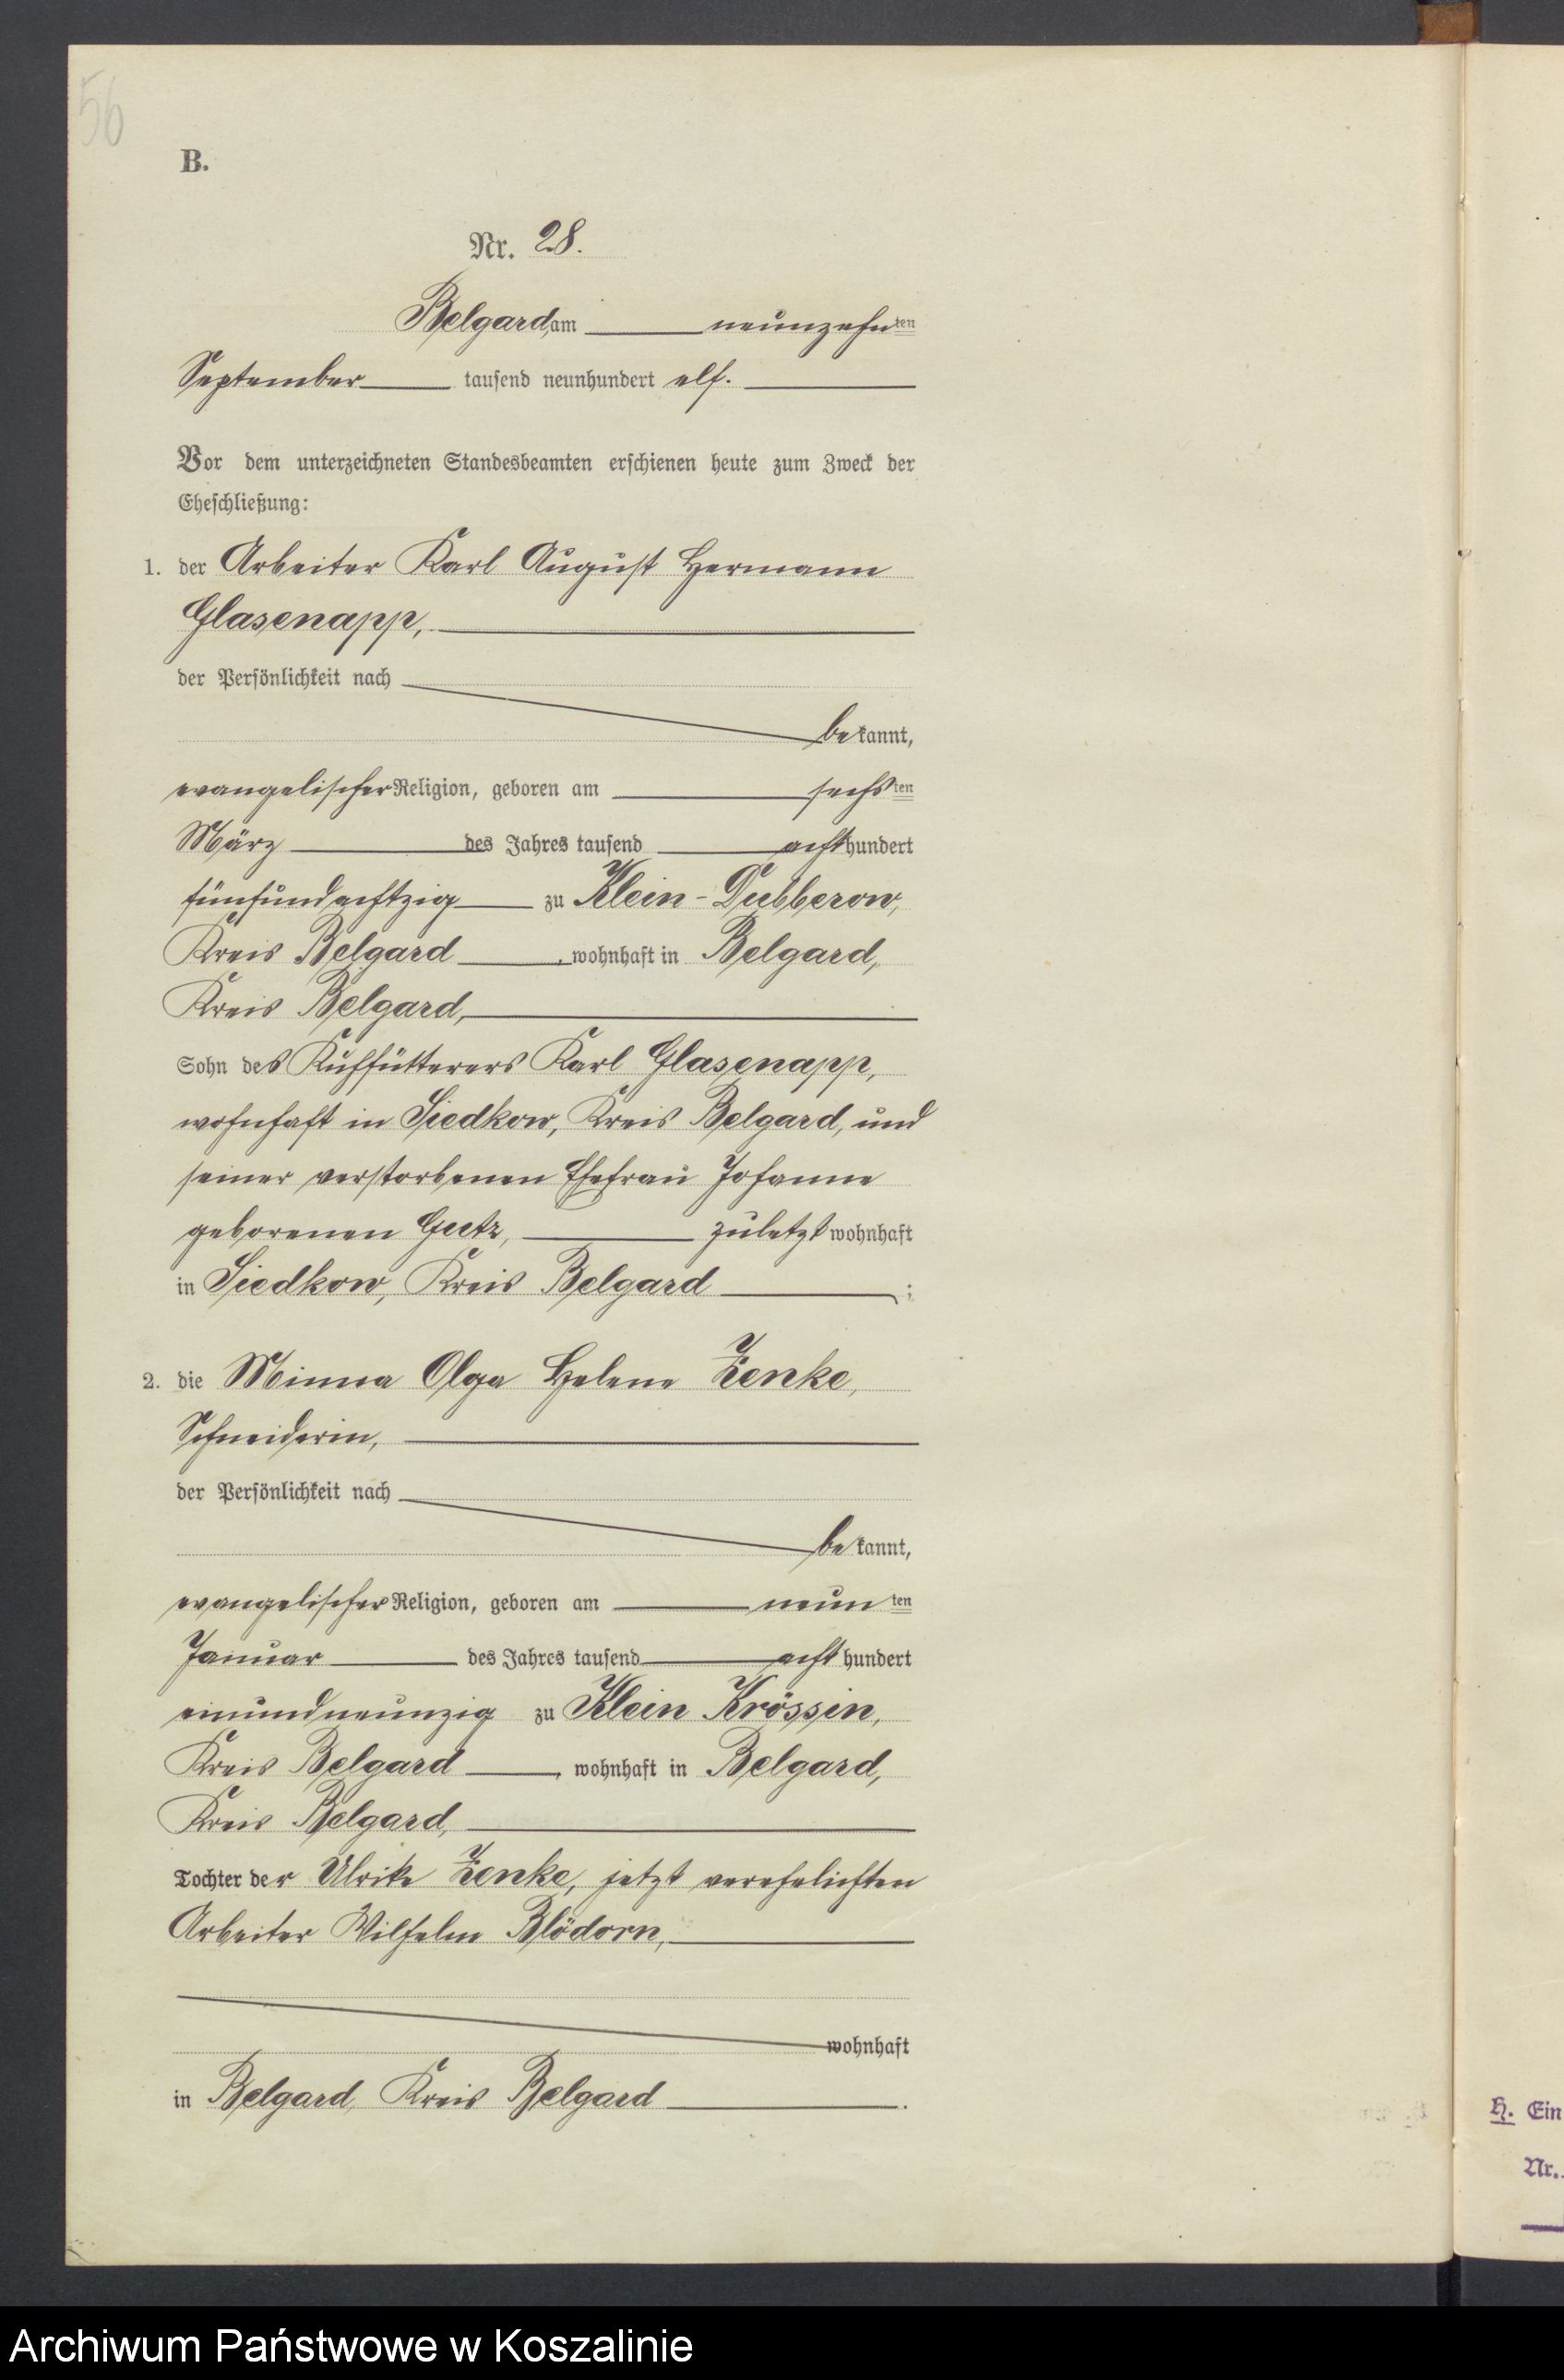 56
B.
Nr. 28.
Belgard, am neunzehnten
September tausend neunhundert elf.
Vor dem unterzeichneten Standesbeamten erschienen heute zum Zweck der
Eheschließung:
1. der Arbeiter Karl August Hermann
Glasenapp,
der Persönlichkeit nach
bekannt,
evangelischer Religion, geboren am sechsten
März des Jahres tausend achthundert
fünfundachtzig zu Klein-Dubberow,
Kreis Belgard, wohnhaft in Belgard,
Kreis Belgard,
Sohn des Kuhfütterers Karl Glasenapp,
wohnhaft in Siedkow, Kreis Belgard, und
seiner verstorbenen Ehefrau Johanne
geborenen zuletzt wohnhaft
in Siedkow, Kreis Belgard ;
2. die Minna Olga Helene Zenke,
Schneiderin,
der Persönlichkeit nach
bekannt,
evangelischer Religion, geboren am neunten
Januar des Jahres tausend achthundert
einundneunzig zu Klein Krössin,
Kreis Belgard, wohnhaft in Belgard,
Kreis Belgard,
Tochter der Ulrike Zenke, jetzt verehelichten
Arbeiter Wilhelm Blödorn,
wohnhaft
in Belgard, Kreis Belgard .
H. Ein
Nr.
Archiwum Państwowe w Koszalinie